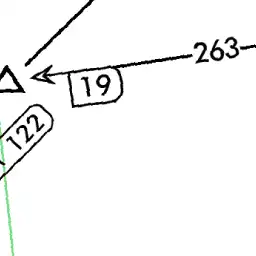 263
19
122